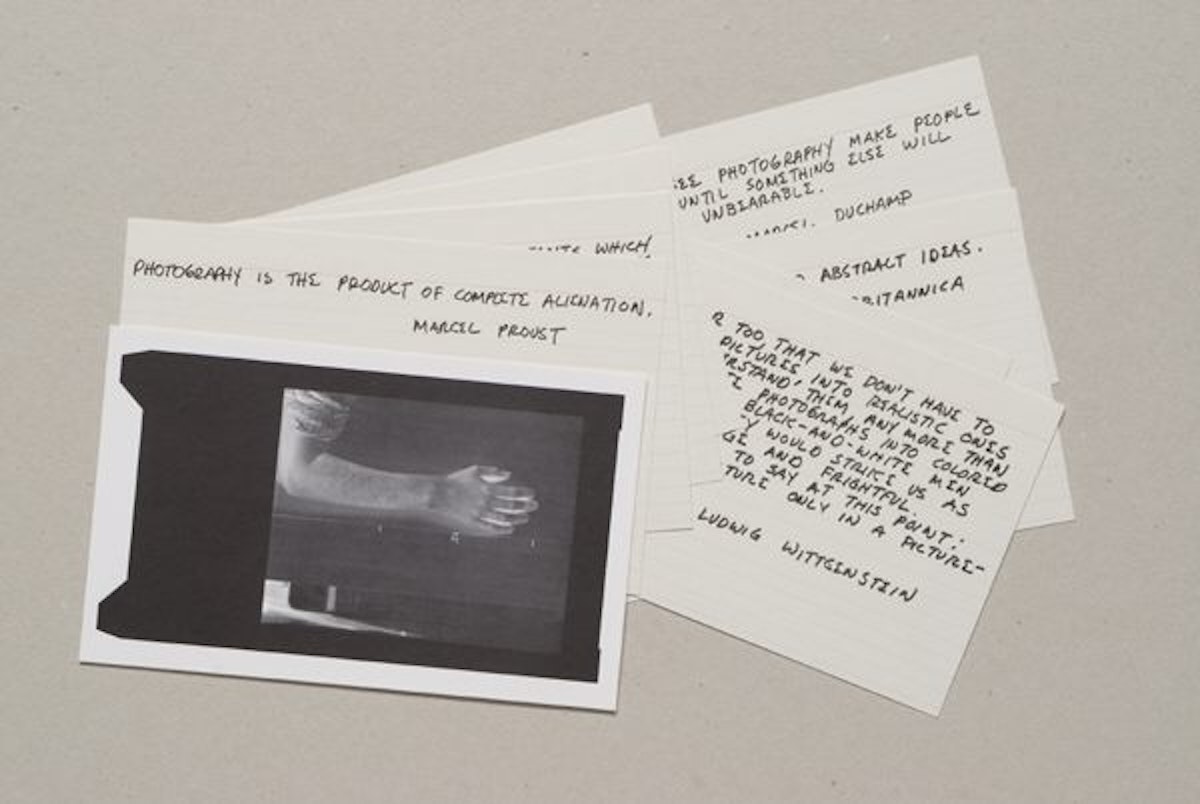 WHICH
PHOTOGRAPHY IS THE PRODUCT OF COMPLETE ALIENATION.
MARCEL PROUST
SEE PHOTOGRAPHY MAKE PEOPLE
UNTIL SOMETHING ELSE WILL
UNBEARABLE.
MARCEL DUCHAMP
ABSTRACT IDEAS.
BRITANNICA
R TOO THAT WE DON'T HAVE TO
PICTURES INTO REALISTIC ONES
RSTAND, THEM ANY MORE THAN
E PHOTOGRAPHS INTO COLORED
BLACK-AND-WHITE MEN
Y WOULD STRIKE US AS
GE AND FRIGHTFUL.
TO SAY AT THIS POINT:
TURE ONLY IN A PICTURE-
LUDWIG WITTGENSTEIN